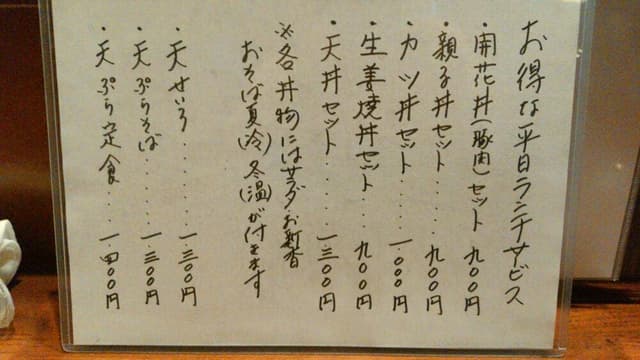 お得な平日ランチサービス
・開花丼(豚肉)セット 九〇〇円
・親子丼セット・・・九〇〇円
・カツ丼セット・・・一、〇〇〇円
・生姜焼丼セット・・九〇〇円
・天丼セット・・・・一、三〇〇円
※各丼物にはサラダ、お新香
おそば夏(冷)冬(温)が付きます
・天せいろ・・・・・一、三〇〇円
・天ぷらそば・・・・一、三〇〇円
・天ぷら定食・・・・一、四〇〇円